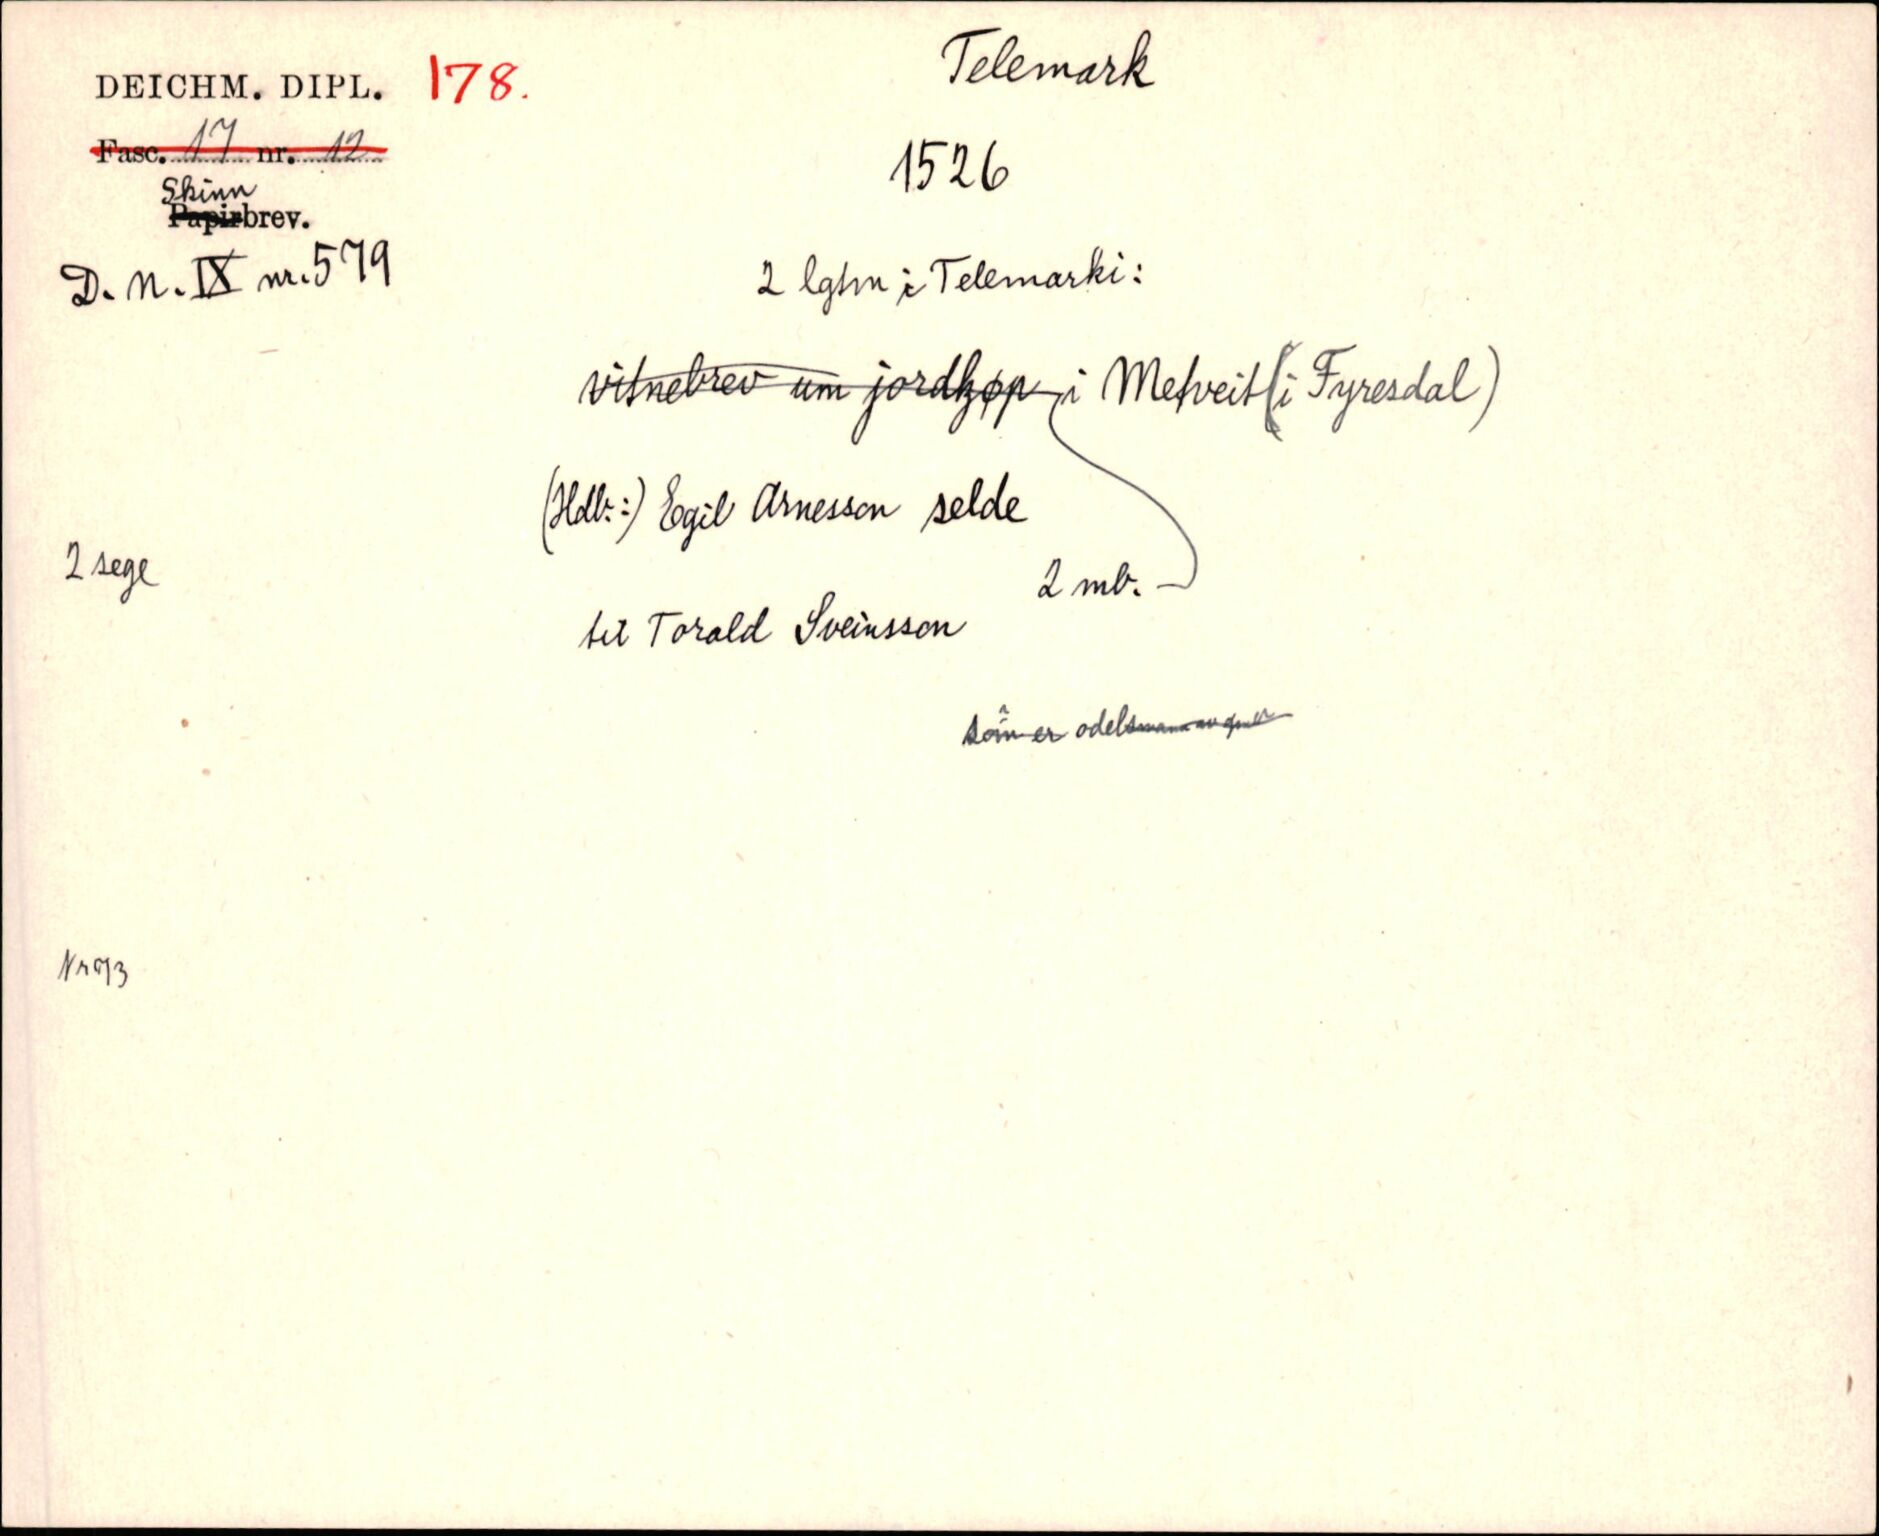 DEICHM. DIPL. 178.
Telemark
Fasc. 17 nr. 12
1526
Skinn
Papirbrev.
D. N. IX nr. 579
2 lgtm i Telemarki:
vitnebrev um jordkøp i Metveit (i Fyresdal)
(Hdl:) Egil Arnesson selde
2 sege
2 mb.
til Torald Sveinsson
som er odelsmann
Nr 073